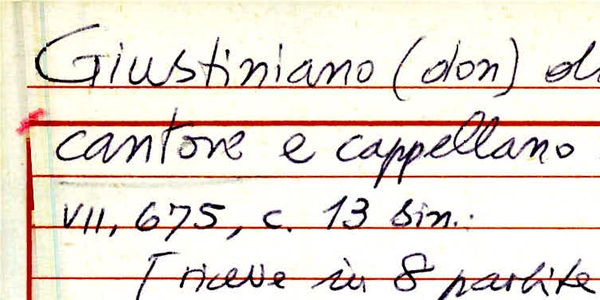 Giustiniano (don) di
cantore e cappellano
VII, 675, c. 13 sin.:
[riceve in 8 partite